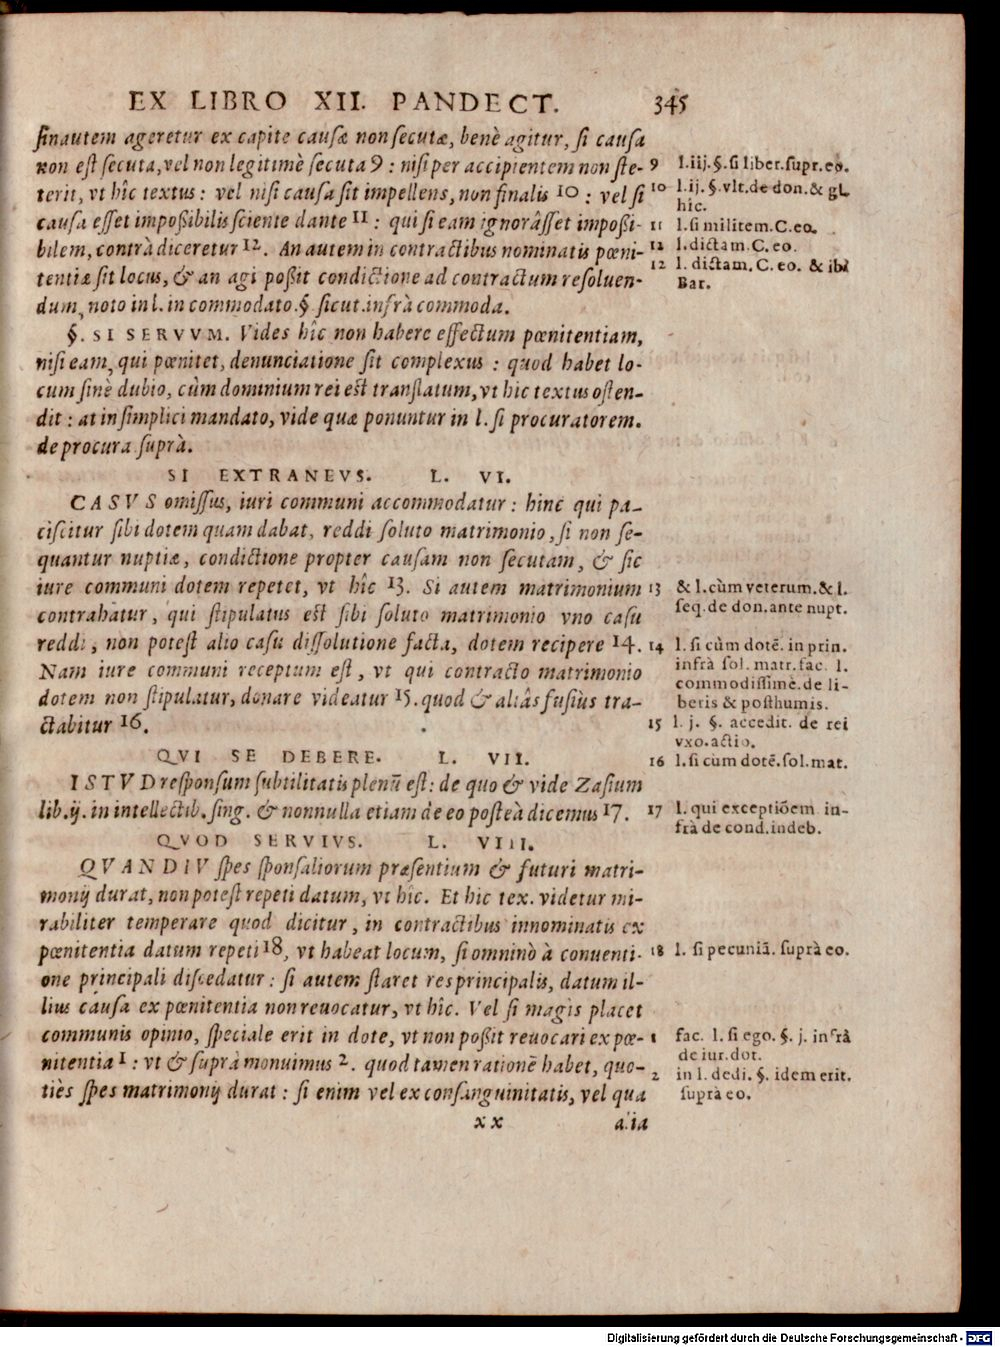 EX LIBRO XII. PANDECT. 345
sinautem ageretur ex capite causæ non secutæ, benè agitur, si causa
non est secuta, vel non legitimè secuta 9 : nisi per accipientem non ste-
terit, vt hîc textus : vel nisi causa sit impellens, non finalis 10 : vel si
causa esset impoßibilis sciente dante 11 : qui si eam ignorâsset impoßi-
bilem, contrà diceretur 12. An autem in contractibus nominatis pœni-
tentiæ sit locus, & an agi poßit condictione ad contractum resoluen-
dum, noto in l. in commodato. §. sicut. infrà commoda.
§. SI SERVVM. Vides hîc non habere effectum pœnitentiam,
nisi eam, qui pœnitet, denunciatione sit complexus : quod habet lo-
cum sinè dubio, cùm dominium rei est translatum, vt hic textus osten-
dit : at in simplici mandato, vide quæ ponuntur in l. si procuratorem.
de procura. suprà.
SI EXTRANEVS. L. VI.
CASVS omissus, iuri communi accommodatur : hinc qui pa-
ciscitur sibi dotem quam dabat, reddi soluto matrimonio, si non se-
quantur nuptiæ, condictione propter causam non secutam, & sic
iure communi dotem repetet, vt hîc 13. Si autem matrimonium
contrahatur, qui stipulatus est sibi soluto matrimonio vno casu
reddi, non potest alio casu dissolutione facta, dotem recipere 14.
Nam iure communi receptum est, vt qui contracto matrimonio
dotem non stipulatur, donare videatur 15. quod & aliâs fusiùs tra-
ctabitur 16.
QVI SE DEBERE. L. VII.
ISTVD responsum subtilitatis plenũ est : de quo & vide Zasium
lib. ij. in intellectib. sing. & nonnulla etiam de eo posteà dicemus 17.
QVOD SERVIVS. L. VIII.
QVANDIV spes sponsaliorum præsentium & futuri matri-
monij durat, non potest repeti datum, vt hîc. Et hic tex. videtur mi-
rabiliter temperare quod dicitur, in contractibus innominatis ex
pœnitentia datum repeti 18, vt habeat locum, si omninò à conuenti-
one principali discedatur : si autem staret res principalis, datum il-
lius causa ex pœnitentia non reuocatur, vt hîc. Vel si magis placet
communis opinio, speciale erit in dote, vt non poßit reuocari ex pœ-
nitentia 1 : vt & suprà monuimus 2. quod tamen rationẽ habet, quo-
tiès spes matrimonij durat : si enim vel ex consanguinitatis, vel qua
xx a.ia
9 l. iij. §. si liber. supr. eo.
10 l. ij. §. vlt. de don. & gl.
hic.
11 l. si militem. C. eo.
12 l. dictam. C. eo.
12 l. dictam. C. eo. & ibi
Bar.
13 & l. cùm veterum. & l.
seq. de don. ante nupt.
14 l. si cùm dotẽ. in prin.
infrà sol. matr. fac. l.
commodissimè. de li-
beris & posthumis.
15 l. j. §. accedit. de rei
vxo. actio.
16 l. si cùm dotẽ. sol. mat.
17 l. qui exceptiõem in-
frà de cond. indeb.
18 l. si pecuniã. suprà eo.
1 fac. l. si ego. §. j. infrà
de iur. dot.
2 in l. dedi. §. idem erit.
suprà eo.
Digitalisierung gefördert durch die Deutsche Forschungsgemeinschaft - DFG